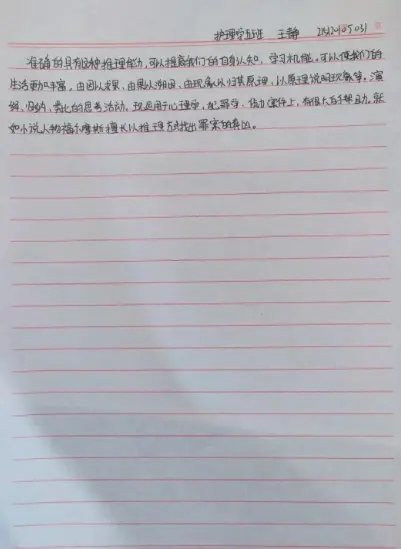 护理学五班 王静
准确的具有这种推理能力,可以提高我们的自身认知、学习机能,可以使我们的
生活更加丰富,由因以求果、由果以溯因、由现象以归其原理,以原理说明现象等,演
绎、归纳、类比的思考活动,现运用于心理学,犯罪学,侦办案件上,有很大的帮助。就
如小说人物福尔摩斯擅长以推理方式找出罪案的真凶。